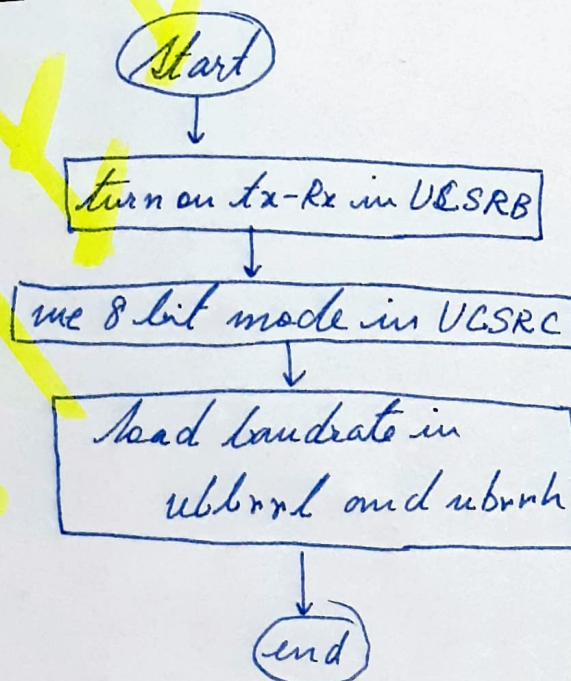 Start
turn on tx-Rx in UCSRB
use 8 bit mode in UCSRC
load baudrate in
ubbrrl and ubrrh
end